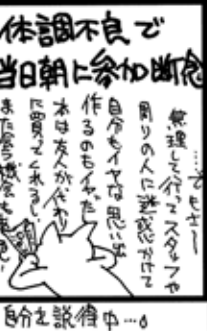 体調不良で
当日朝に参加断念
……でもさー
無理して行ってスタッフや
周りの人に迷惑かけて
自分もイヤな思い出
作るのもイヤだし
本は友人が代わり
に買ってくれるし
また会う機会も
自分を説得中…。